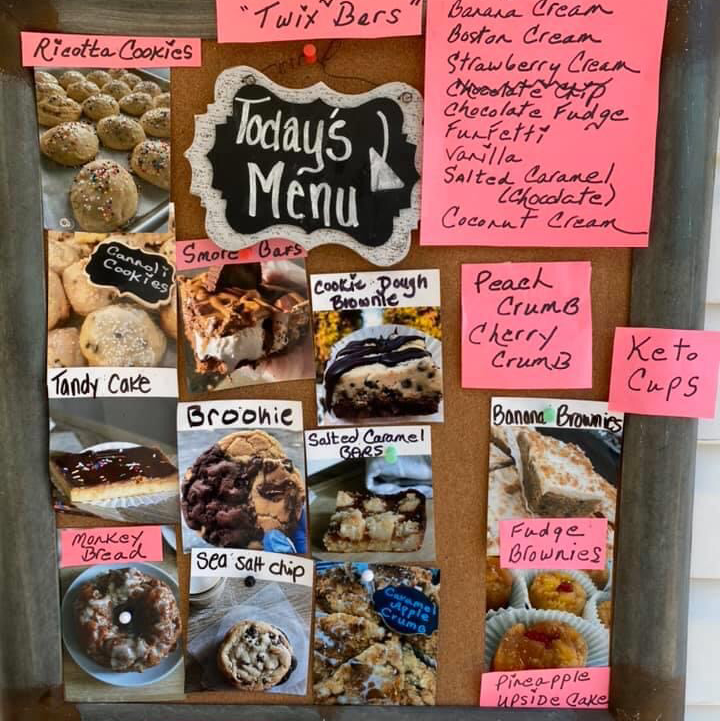 "Twix Bars"
Ricotta Cookies
Today's
Menu
Banana Cream
Boston Cream
Strawberry Cream
Chocolate Chip
Chocolate Fudge
Funfetti
Vanilla
Salted Caramel
(Chocolate)
Coconut Cream
Cannoli
Cookies
Smore Bars
Cookie Dough
Brownie
Peach
Crumb
Cherry
Crumb
Keto
Cups
Tandy Cake
Brookie
Salted Caramel
BARS
Banana Brownies
Monkey
Bread
Sea Salt chip
Caramel
Apple
Crumb
Fudge
Brownies
Pineapple
Upside Cake